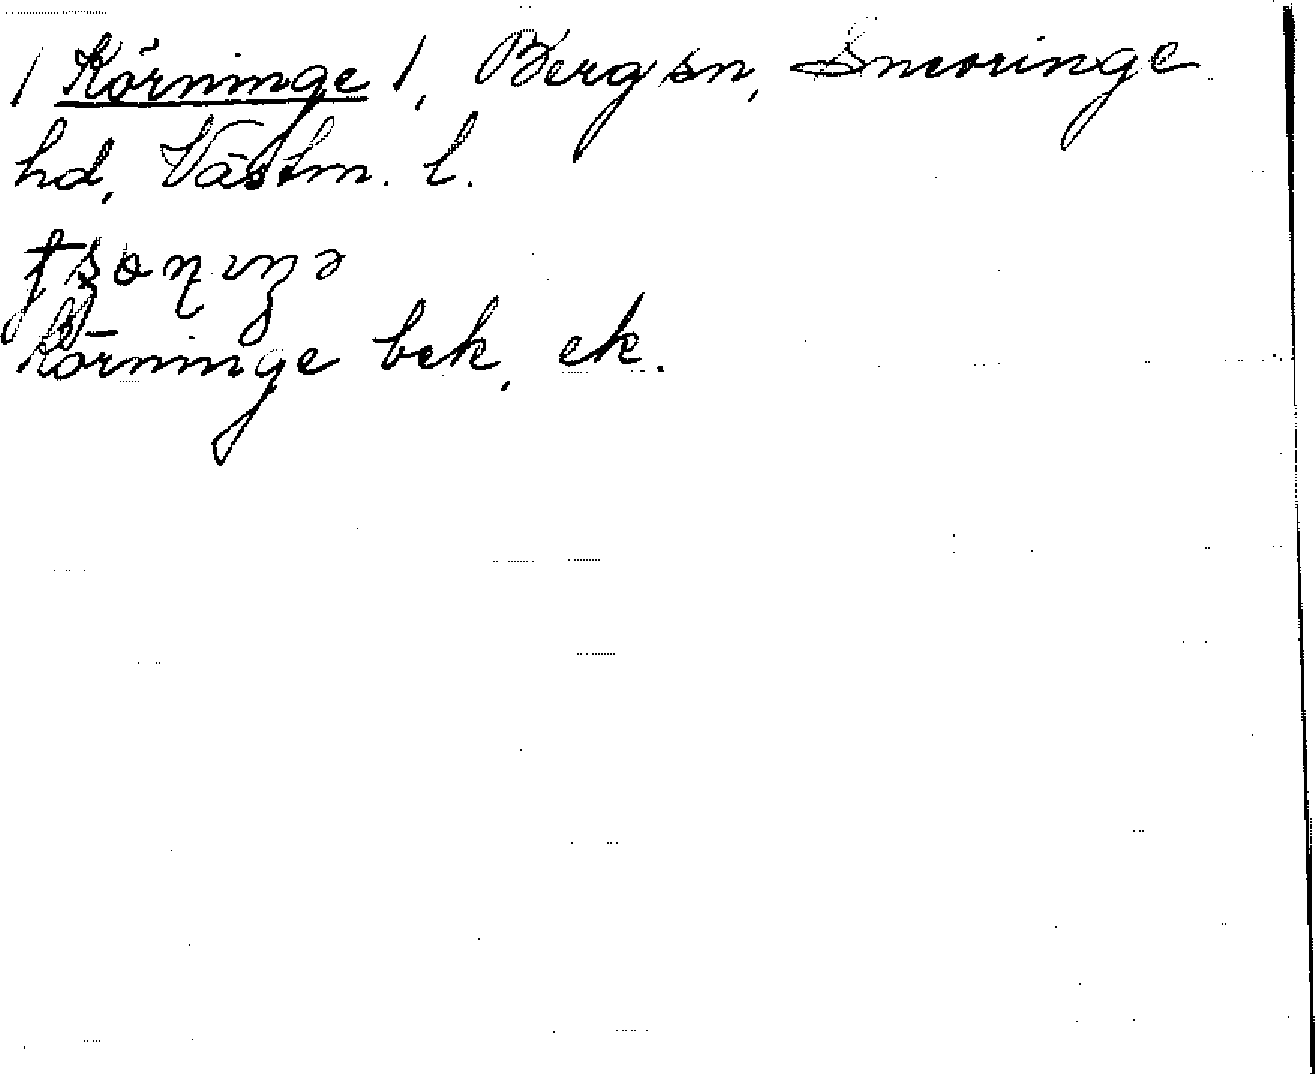 / Körninge /, Berg sn, Snevringe
hd, Västm. l.
Körninge bek, ek.